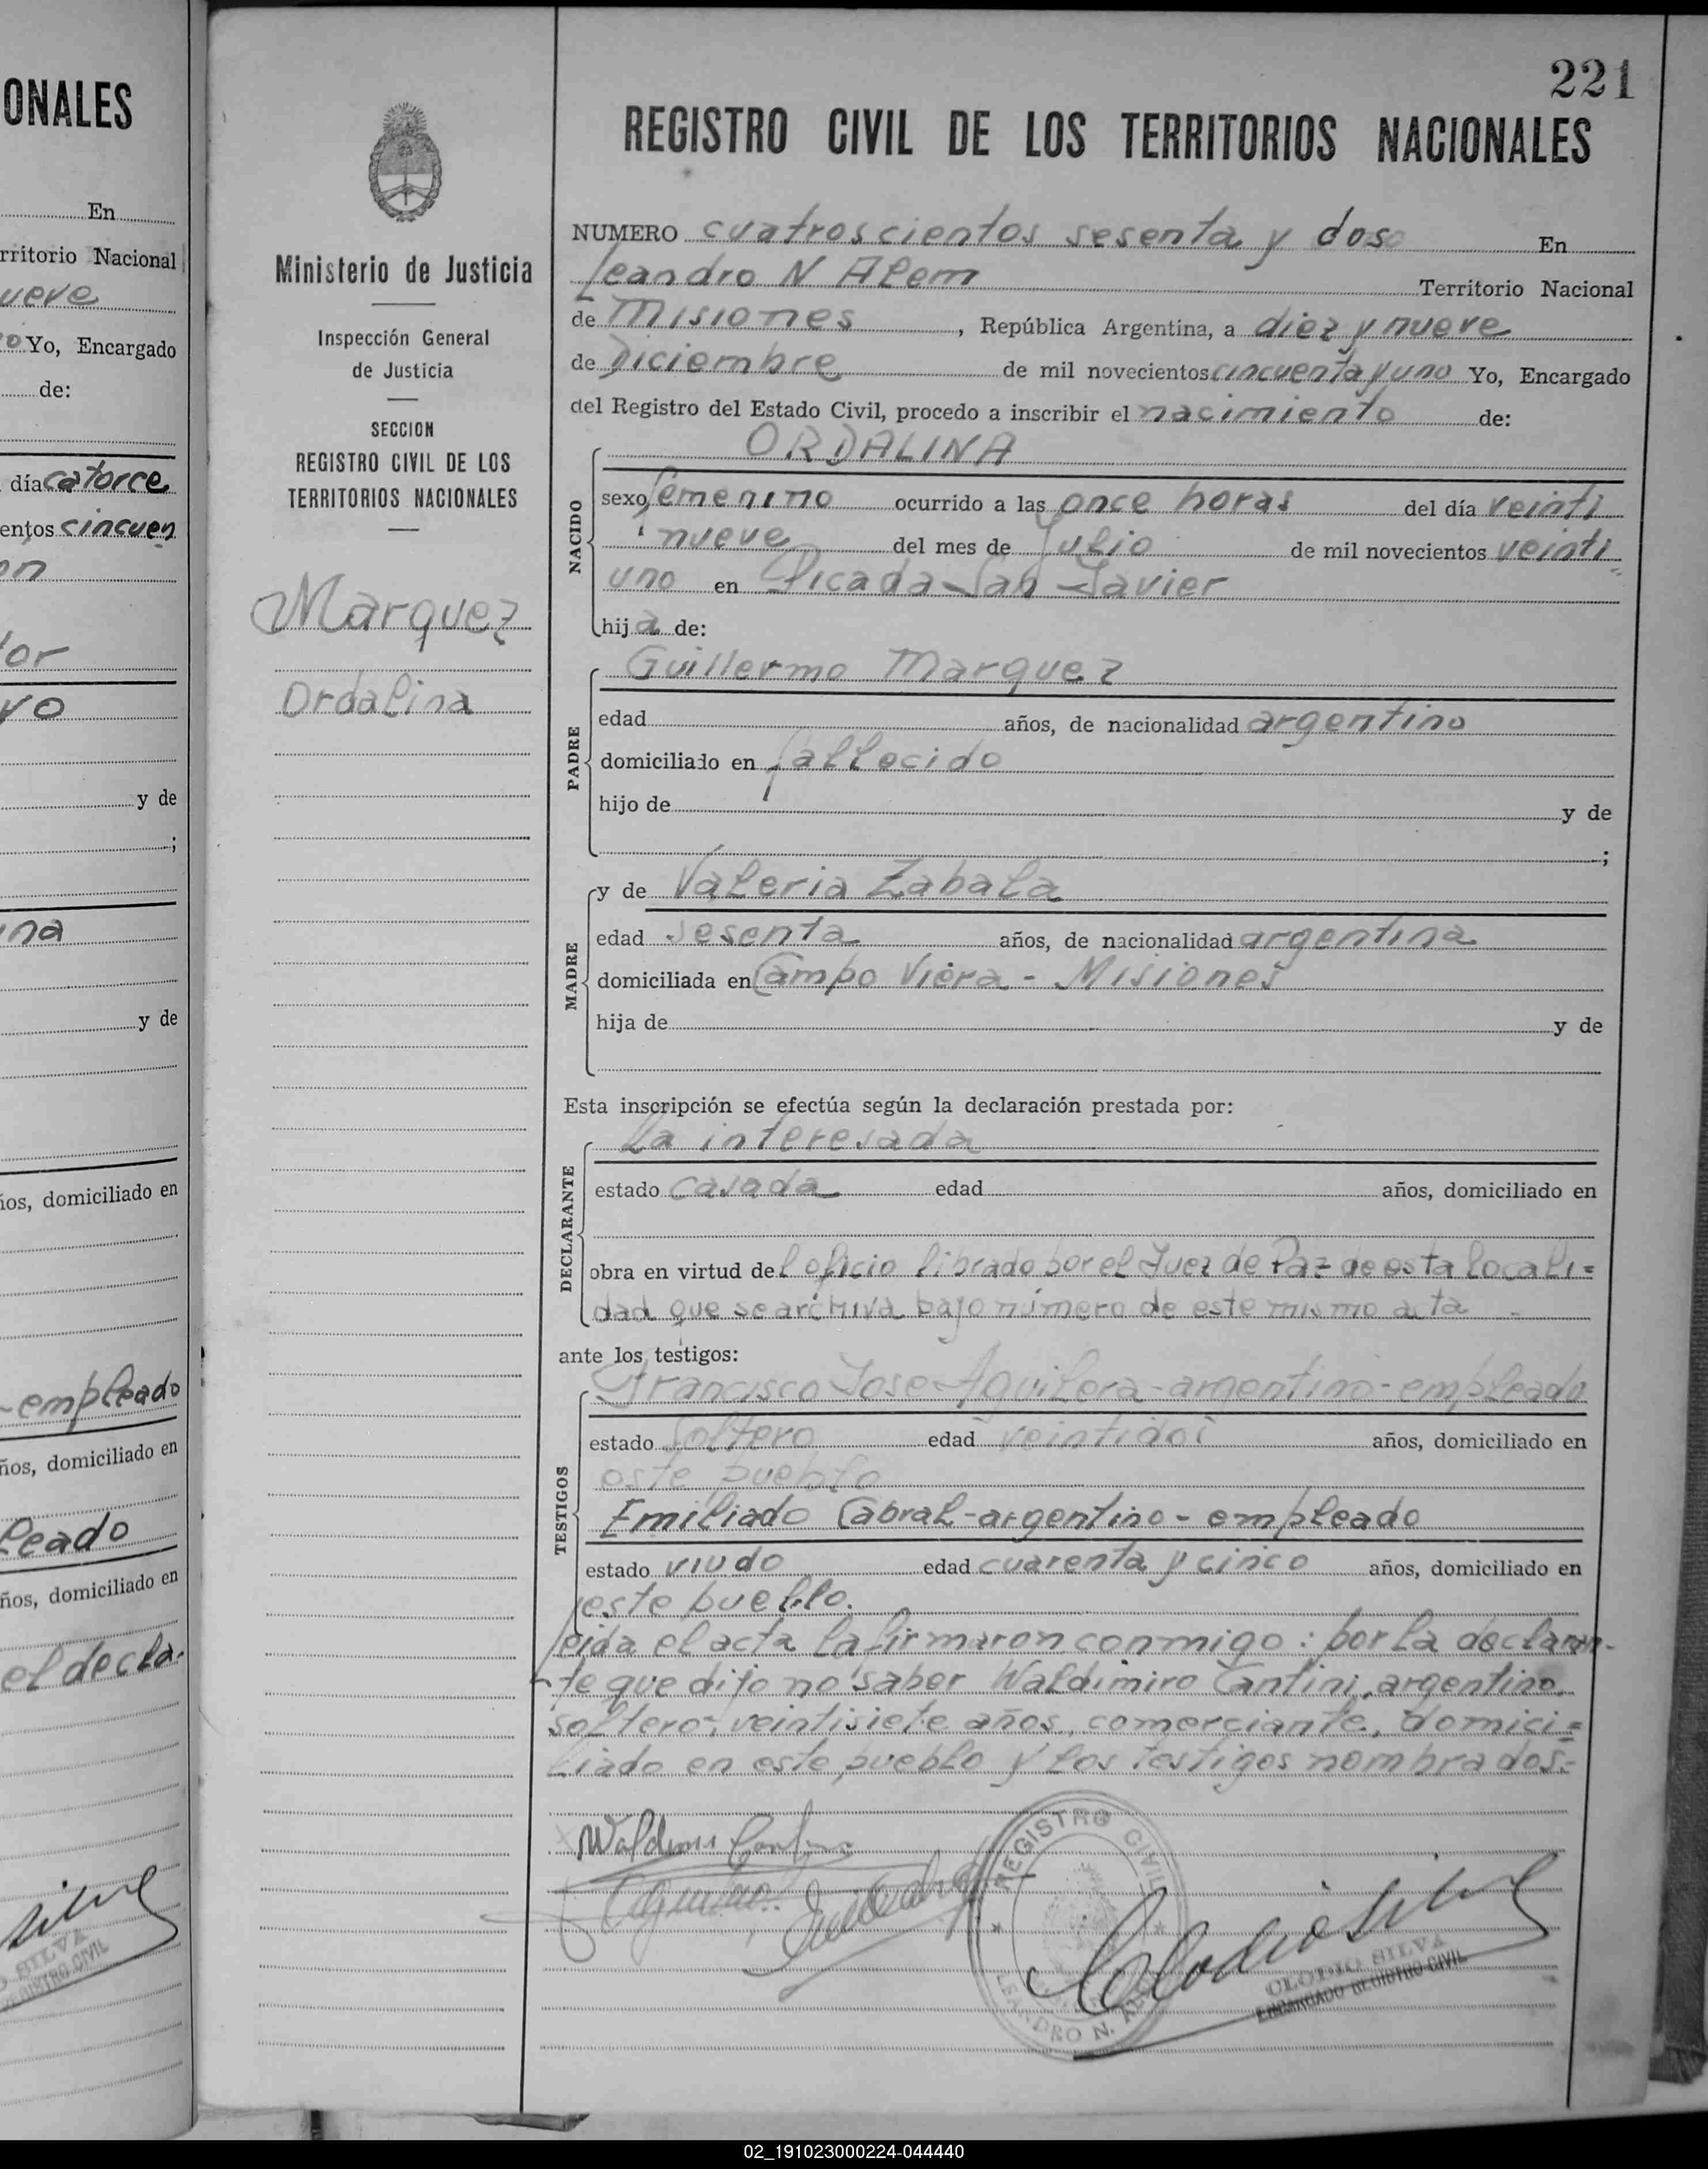 ONALES
En
rritorio Nacional
ueve
Yo, Encargado
de:
día catorce
entos cincuen
or
vo
y de
;
na
y de
ños, domiciliado en
-empleado
ños, domiciliado en
leado
ños, domiciliado en
el decla-
SILVA
REGISTRO CIVIL
221
Ministerio de Justicia
Inspección General
de Justicia
SECCION
REGISTRO CIVIL DE LOS
TERRITORIOS NACIONALES
Marquez
Ordalina
REGISTRO CIVIL DE LOS TERRITORIOS NACIONALES
NUMERO cuatroscientos sesenta y dos En
Leandro N Alem Territorio Nacional
de Misiones, República Argentina, a diez y nueve
de Diciembre de mil novecientos cincuenta y uno Yo, Encargado
del Registro del Estado Civil, procedo a inscribir el nacimiento de:
ORDALINA
NACIDO
sexo femenino ocurrido a las once horas del día veinti
nueve del mes de Julio de mil novecientos veinti
uno en Picada San Javier
hija de:
Guillermo Marquez
PADRE
edad años, de nacionalidad argentino
domiciliado en fallecido
hijo de y de
;
y de Valeria Zabala
MADRE
edad sesenta años, de nacionalidad argentina
domiciliada en Campo Viera - Misiones
hija de y de
Esta inscripción se efectúa según la declaración prestada por:
La interesada
DECLARANTE
estado casada edad años, domiciliado en
obra en virtud del oficio librado por el Juez de Paz de esta locali=
dad que se archiva bajo número de este mismo acta
ante los testigos:
Francisco Jose Aguilera-argentino-empleado
TESTIGOS
estado soltero edad veintidos años, domiciliado en
este pueblo
Emiliado Cabral-argentino-empleado
estado viudo edad cuarenta y cinco años, domiciliado en
este pueblo.
leida el acta la firmaron conmigo: por la declaran-
te que dijo no saber Waldimiro Cantini, argentino,
soltero, veintisiete años, comerciante, domici=
liado en este pueblo y los testigos nombrados.-
REGISTRO CIVIL
LEANDRO N. ALEM
Clodio Silva
CLODIO SILVA
ENCARGADO REGISTRO CIVIL
02_191023000224-044440